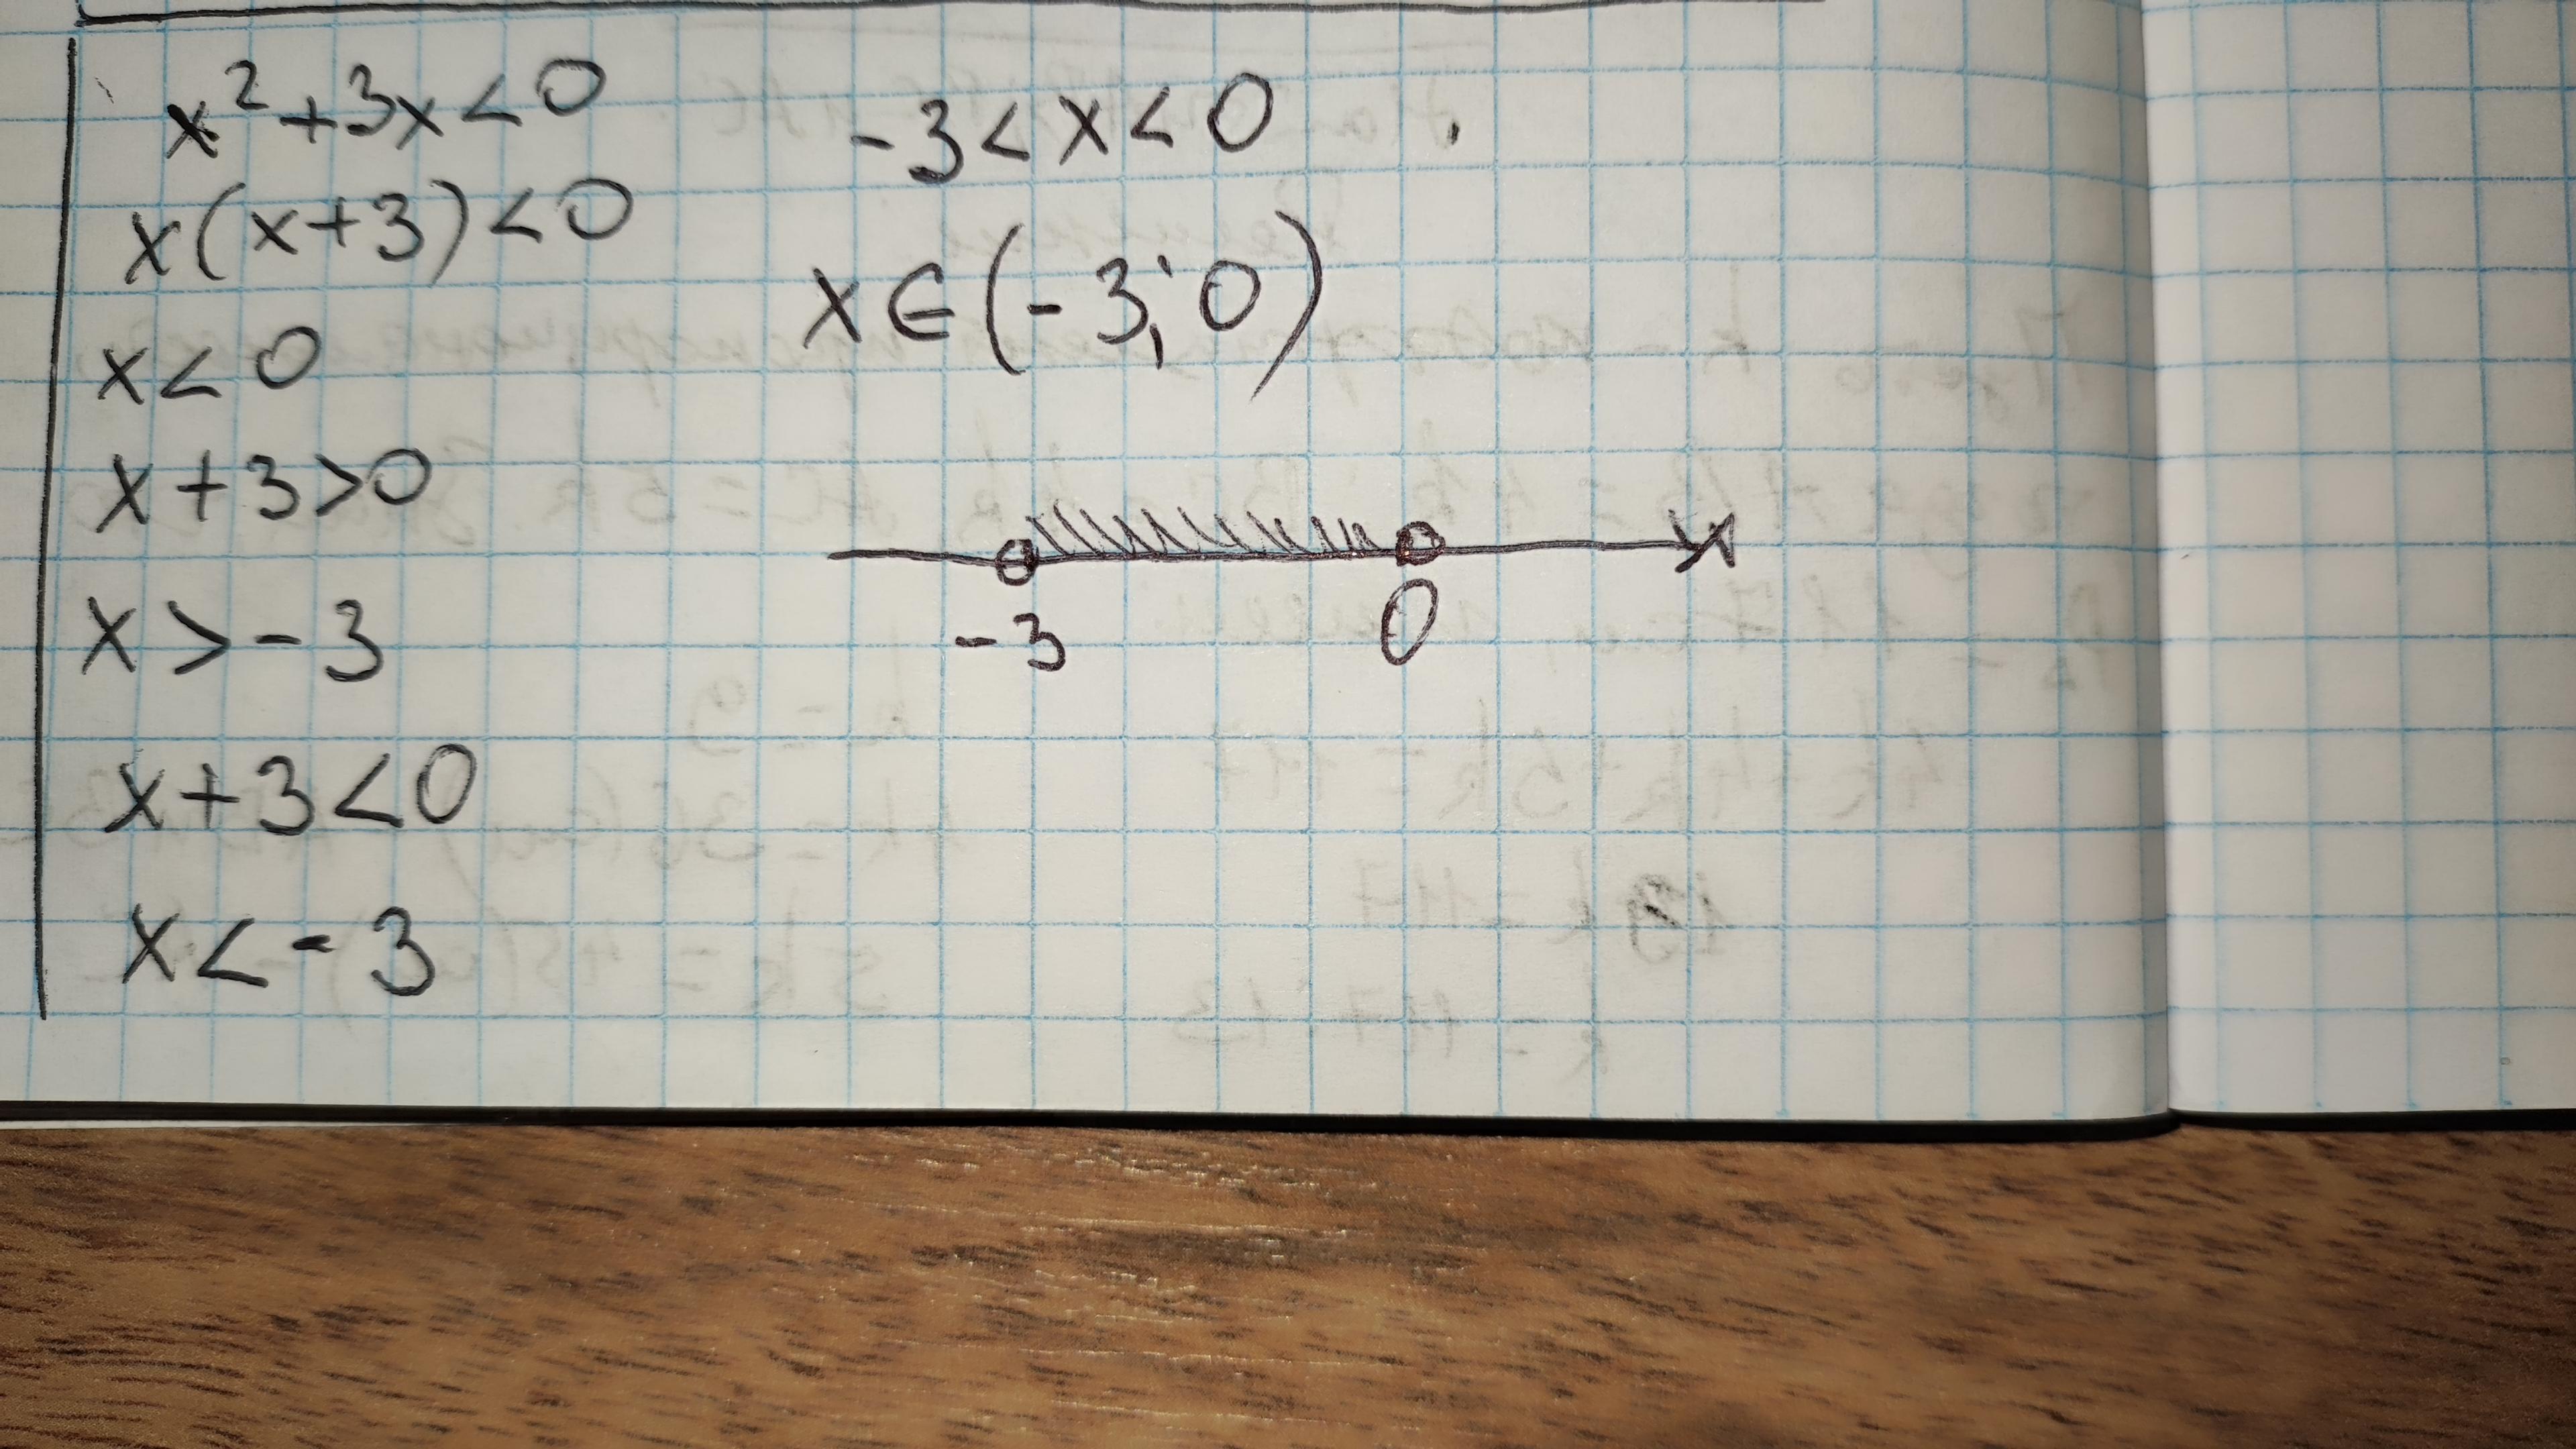 x²+3x<0
x(x+3)<0
x<0
x+3>0
x>-3
x+3<0
x<-3
-3<x<0
x∈(-3;0)
x
-3 0